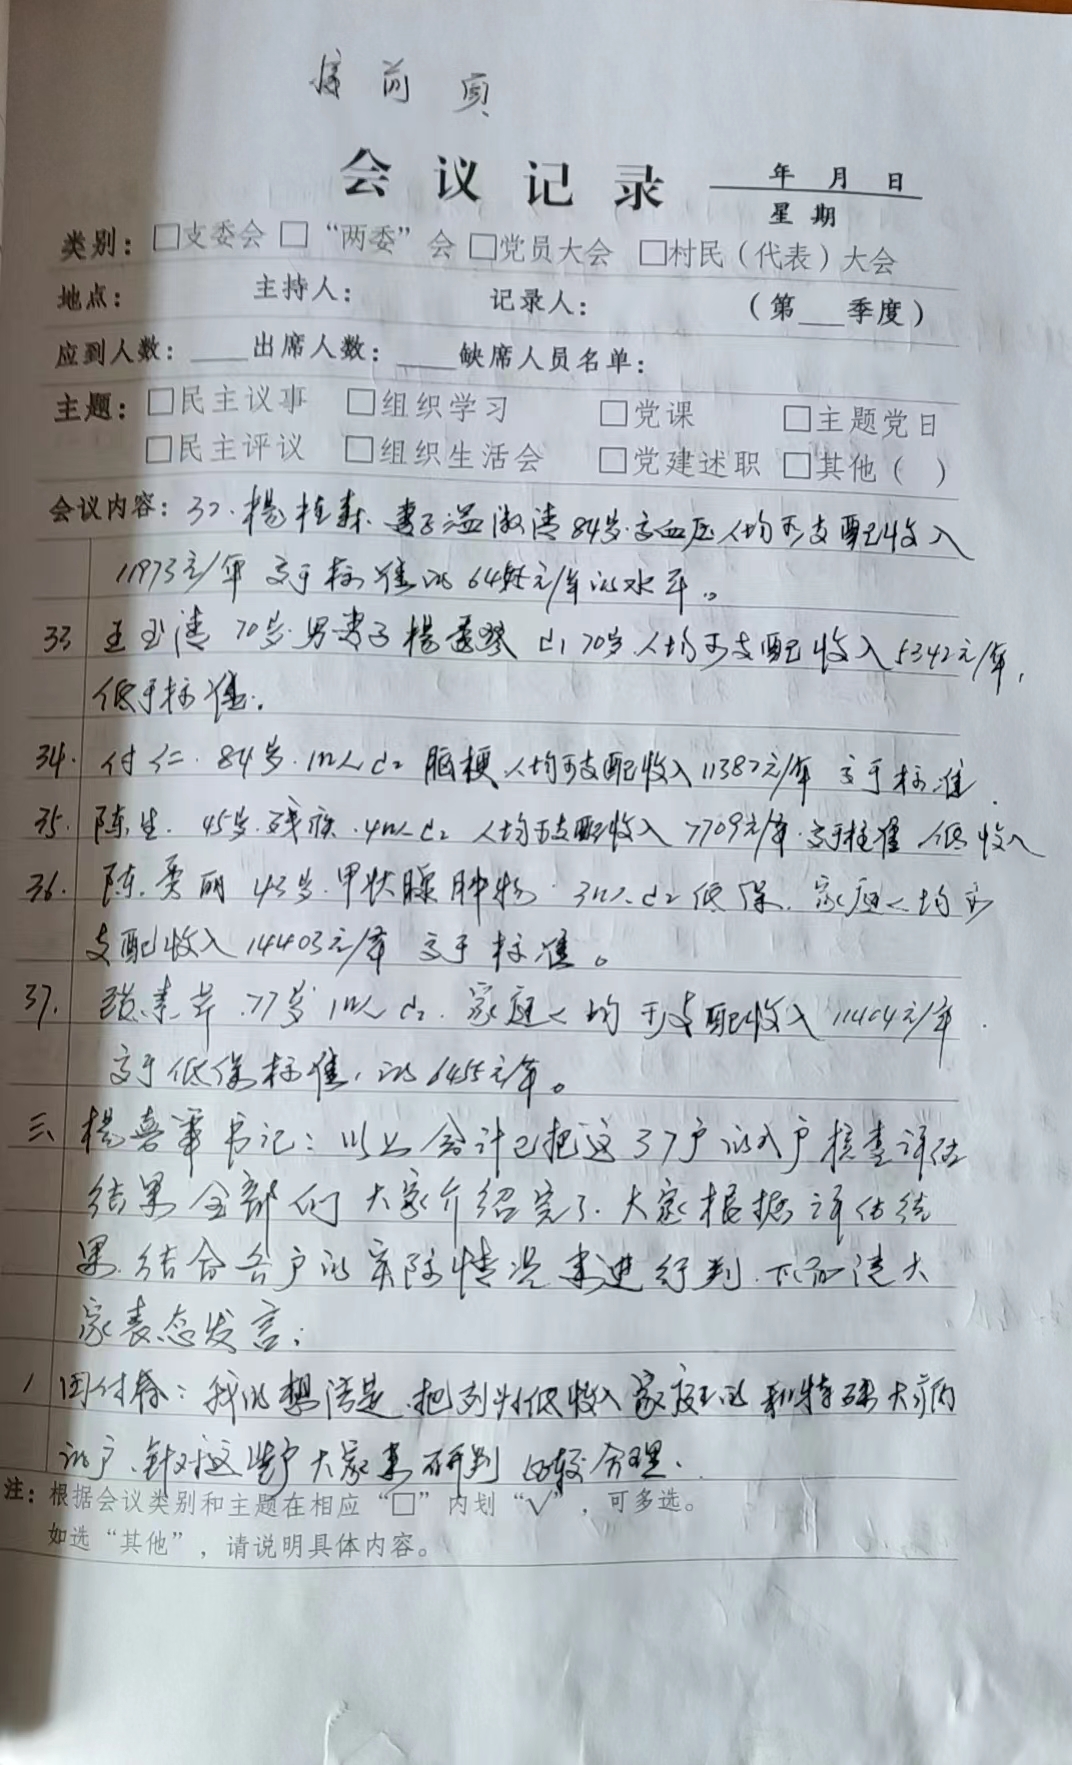 接前页
会议记录 年 月 日
星期
类别：□支委会 □“两委”会 □党员大会 □村民（代表）大会
地点： 主持人： 记录人： （第___季度）
应到人数：___出席人数：___缺席人员名单：
主题：□民主议事 □组织学习 □党课 □主题党日
□民主评议 □组织生活会 □党建述职 □其他（ ）
会议内容：32.杨桂森.妻子温淑清84岁.高血压人均可支配收入
11973元/年 高于标准的6455元/年的水平。
33 王玉清 70岁.男妻子杨 琴 70岁.人均可支配收入5342元/年,
低于标准.
34. 付仁.84岁.1口人 脑梗 人均可支配收入11382元/年 高于标准.
35. 陈生.45岁.残疾.4口人 人均可支配收入7709元/年.高于标准 低收入
36. 陈 丽 43岁.甲状腺肿物.3口人 低保.家庭人均可
支配收入14403元/年 高于标准。
37. 张素芹.77岁1口人.家庭人均可支配收入 元/年.
高于低保标准,的6455元/年。
三、杨喜军书记：以上会计已把这37户的入户核查评估
结果全部向大家介绍完了.大家根据评估结
果.结合各户的实际情况来进行判.下面请大
家表态发言：
1 田付春：我的想法是.把列为低收入家庭的和特殊大病
的户.针对这些户大家来研判 比较合理.
注：根据会议类别和主题在相应“□”内划“√”，可多选。
如选“其他”，请说明具体内容。